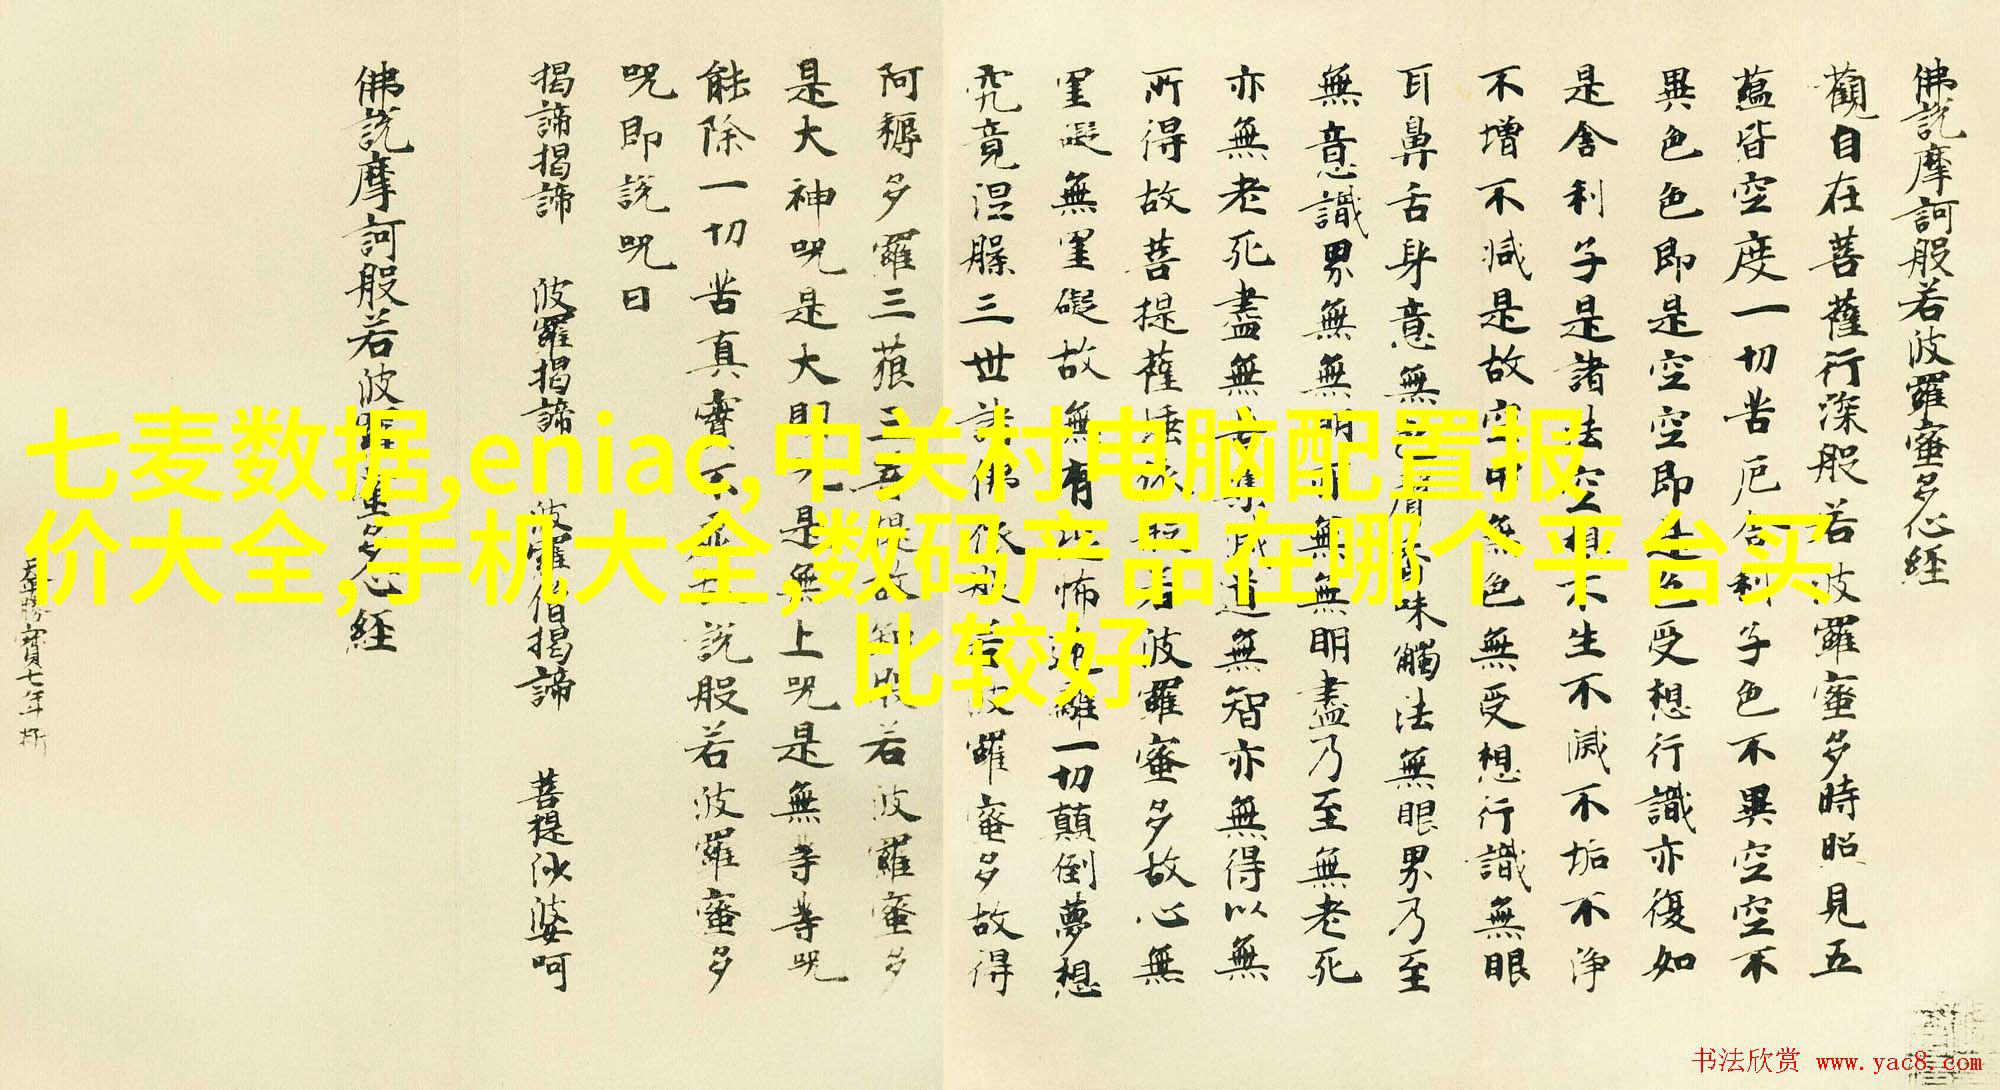 佛說摩訶般若波羅蜜多心經
觀自在菩薩行深般若波羅蜜多時照見五
蘊皆空度一切苦厄舍利子色不異空空不
異色色即是空空即是色受想行識亦復如
是舍利子是諸法空相不生不滅不垢不淨
不增不減是故空中無色無受想行識無眼
耳鼻舌身意無色聲香味觸法無眼界乃至
無意識界無無明亦無無明盡乃至無老死
亦無老死盡無苦集滅道無智亦無得以無
所得故菩提薩埵依般若波羅蜜多故心無
罣礙無罣礙故無有恐怖遠離一切顛倒夢想
究竟涅槃三世諸佛依般若波羅蜜多故得
阿耨多羅三藐三菩提故知般若波羅蜜多
是大神呪是大明呪是無上呪是無等等呪
能除一切苦真實不虛故說般若波羅蜜多
呪即說呪曰
揭諦揭諦 波羅揭諦 波羅僧揭諦 菩提沙婆呵
佛說摩訶般若波羅蜜多心經
七麦数据,eniac,中关村电脑配置报
价大全,手机大全,数码产品在哪个平台买
比较好
书法欣赏 www.yac8.com